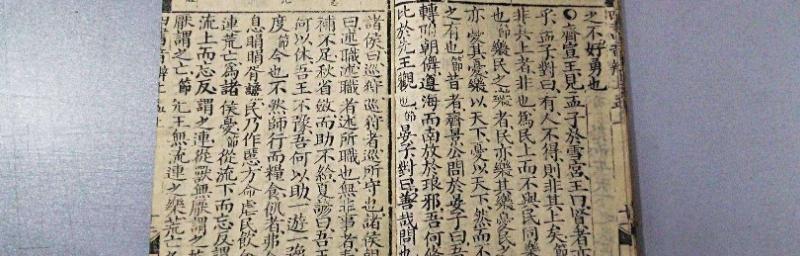 之不好勇也
○齊宣王見孟子於雪宮王曰賢者亦
乎孟子對曰有人不得則非其上矣節
非其上者非也爲民上而不與民同樂
也節樂民之樂者民亦樂其樂憂民之
亦憂其憂樂以天下憂以天下然而不
之有也節昔者齊景公問於晏子曰吾
轉附朝儛遵海而南放於琅邪吾何修
比於先王觀也節晏子對曰善哉問也
諸侯曰巡狩巡狩者巡所守也諸侯朝
曰述職述職者述所職也無非事者春
補不足秋省斂而助不給夏諺曰吾王
何以休吾王不豫吾何以助一遊一豫
度節今也不然師行而糧食飢者弗食
息睊睊胥讒民乃作慝方命虐民飲食
連荒亡爲諸侯憂節從流下而忘反謂
流上而忘反謂之連從獸無厭謂之荒
厭謂之亡節先王無流連之樂荒亡之